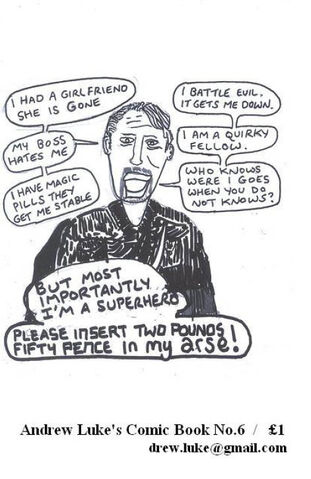 I HAD A GIRLFRIEND
SHE IS GONE
MY BOSS
HATES ME
I HAVE MAGIC
PILLS THEY
GET ME STABLE
I BATTLE EVIL.
IT GETS ME DOWN.
I AM A QUIRKY
FELLOW.
WHO KNOWS
WERE I GOES
WHEN YOU DO
NOT KNOWS?
BUT MOST
IMPORTANTLY...
I'M A SUPERHERO
PLEASE INSERT TWO POUNDS
FIFTY PENCE in my arse!
Andrew Luke's Comic Book No.6 / £1
drew.luke@gmail.com